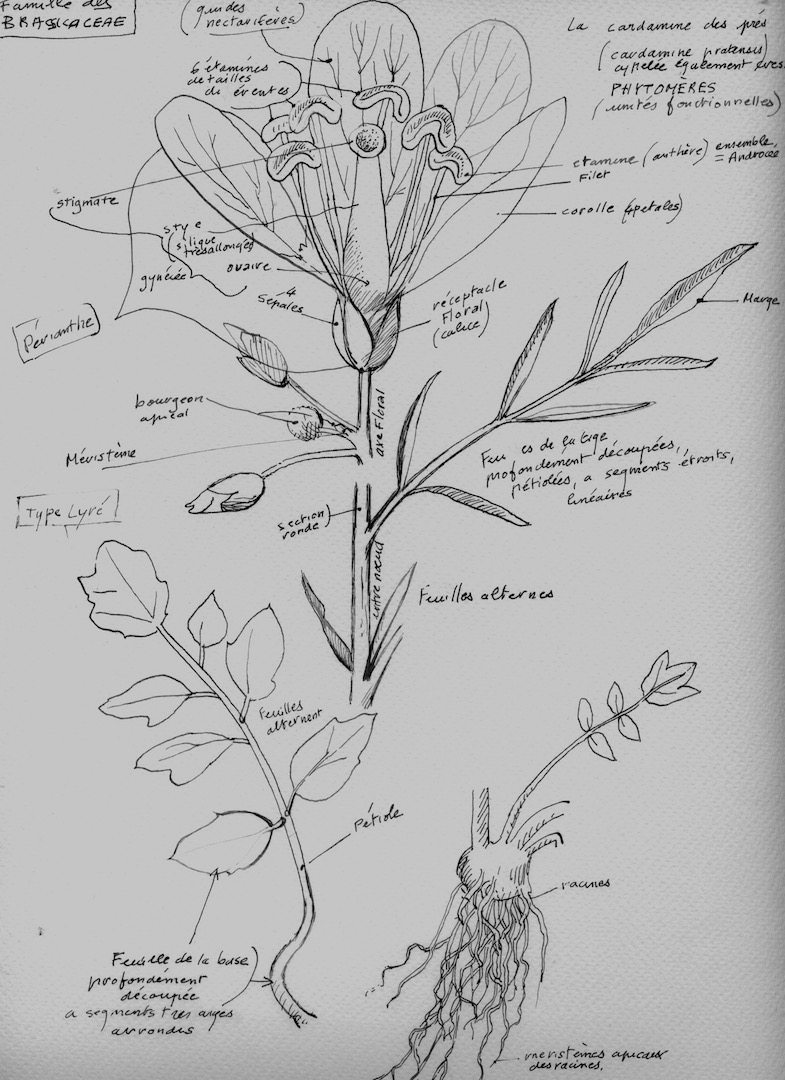 Famille des
BRASSICACEAE
(guides
nectarifères)
La cardamine des prés
(cardamine pratensis)
appelée également
PHYTOMÈRES
(unités fonctionnelles)
6 étamines
de tailles
étamine (anthère) ensemble
= Androcée
Filet
corolle (4 petales)
stigmate
style
(silique
très allongée)
gynécée
ovaire
4
Sépales
réceptacle
Floral
(calice)
Périanthe
Marge
bourgeon
apical
Méristème
axe Floral
de la tige
profondément découpées,
pétiolées, a segments étroits,
linéaires
Type Lyré
section
ronde
entre nœud
Feuilles alternes
Feuilles
alternent
Pétiole
racines
Feuille de la base
profondément
découpée
a segments
arrondis
méristèmes apicaux
des racines.